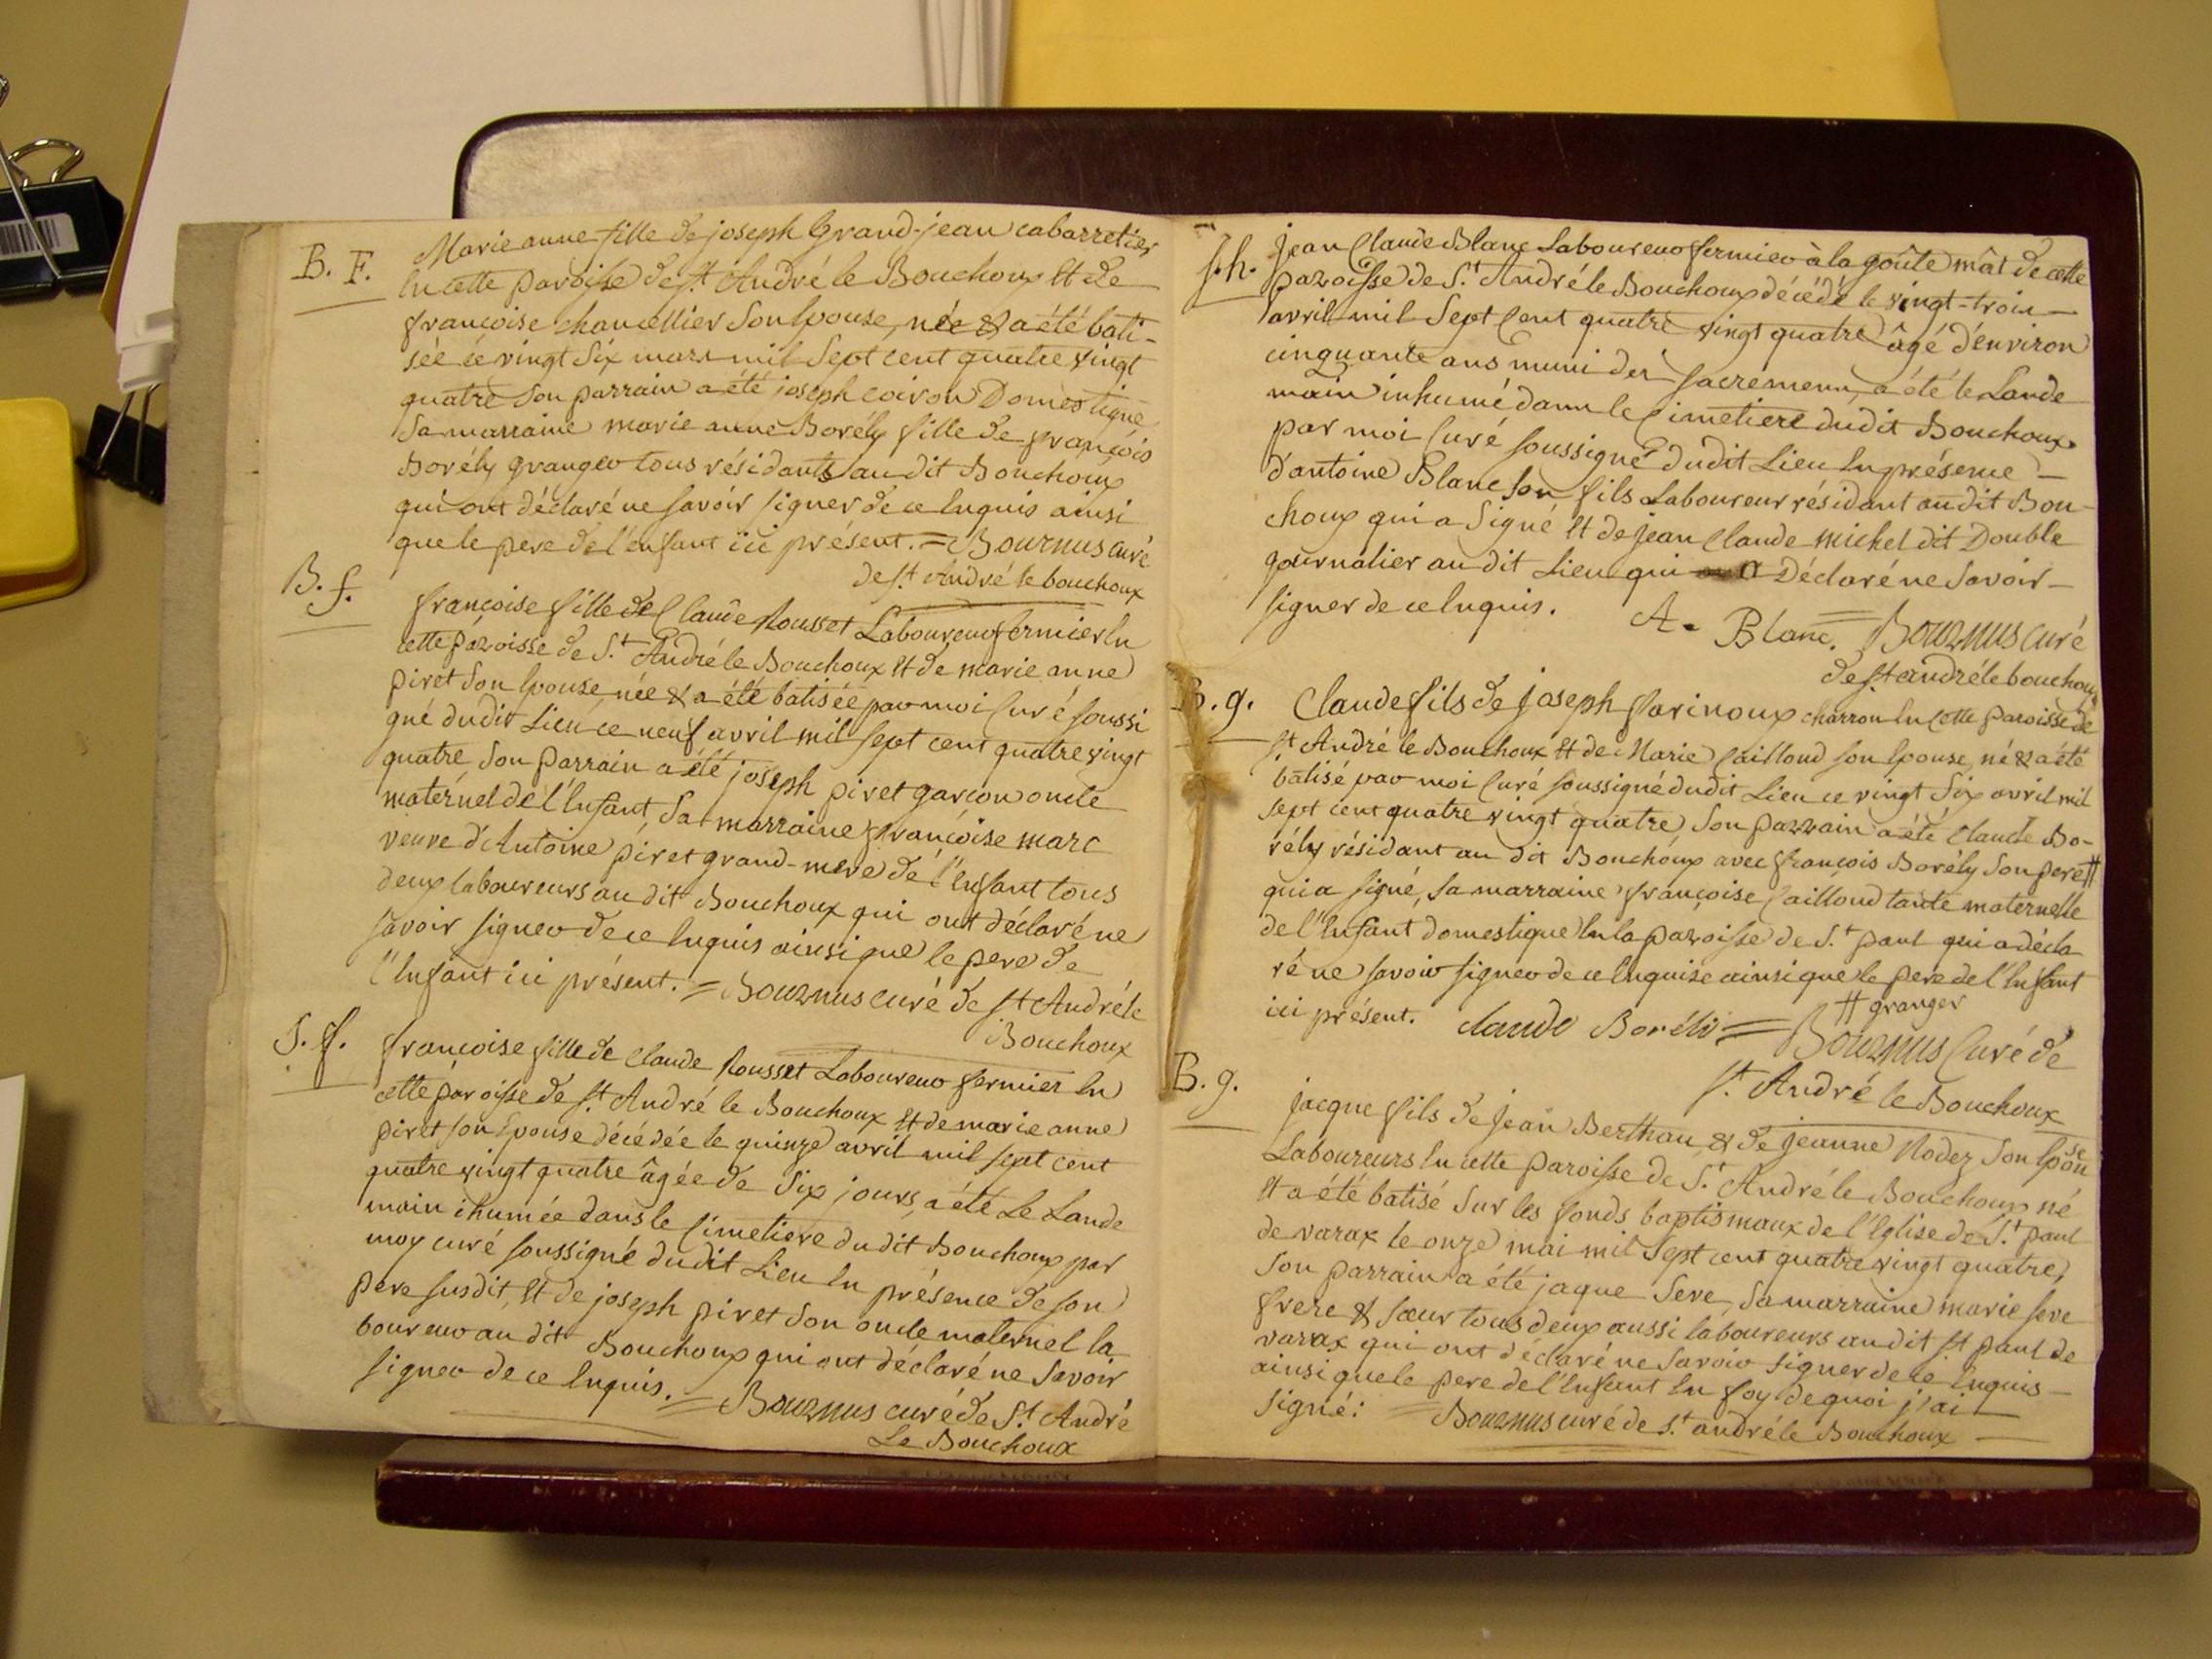 B. F. Marie anne fille de joseph Grand-jean cabarretier
En cette paroisse de st André le Bouchoux Et de
françoise chancellier son Epouse, née & a été bati-
sée ce vingt six mars mil sept cent quatre vingt
quatre son parrain a été joseph coiron Domestique
sa marraine marie anne Borély fille de françois
Borély granger tous résidants au dit Bouchoux
qui ont déclaré ne savoir signer de ce Enquis ainsi
que le pere de l'enfant ici présent. = Bournus curé
de st André le bouchoux
B. f. françoise fille de Claude Rousset Laboureur fermier En
cette paroisse de S.t André le Bouchoux Et de marie anne
piret son Epouse, née & a été batisée par moi Curé soussi
gné dudit Lieu ce neuf avril mil sept cent quatre vingt
quatre, son parrain a été joseph piret garçon oncle
maternel de l'Enfant, sa marraine françoise marc
veuve d'Antoine piret grand-mere de l'Enfant tous
deux laboureurs au dit Bouchoux qui ont déclaré ne
savoir signer de ce Enquis ainsi que le pere de
l'Enfant ici présent. = Bournus curé de st André le
Bouchoux
S. f. françoise fille de Claude Rousset Laboureur fermier En
cette paroisse de st. André le Bouchoux Et de marie anne
piret son Epouse décédée le quinze avril mil sept cent
quatre vingt quatre âgée de six jours, a été Le Lande
main ihumée dans le Cimetiere du dit Bouchoux par
moy curé soussigné dudit Lieu En présence de son
pere susdit, Et de joseph piret son oncle maternel la
boureur au dit Bouchoux qui ont déclaré ne savoir
signer de ce Enquis. = Bournus curé de S.t André
Le Bouchoux
S. h. Jean Claude Blanc Laboureur fermier à la goûte mât de cette
paroisse de S.t André le Bouchoux décédé le vingt-trois
avril mil sept Cent quatre vingt quatre âgé d'environ
cinquante ans muni des sacremens, a été le Lande
main inhumé dans le Cimetiere dudit Bouchoux
par moi Curé soussigné dudit Lieu En présence
d'antoine Blanc son fils Laboureur résidant au dit Bou-
choux qui a signé Et de jean Claude michel dit Double
journalier au dit Lieu qui a Déclaré ne savoir
signer de ce Enquis. A. Blanc. = Bournus curé
de st andré le bouchoux
B. g. Claude fils de joseph Marinoux charron En Cette paroisse de
st André le Bouchoux Et de Marie Cailloud son Epouse, né & a été
batisé par moi Curé soussigné dudit Lieu ce vingt six avril mil
sept cent quatre vingt quatre, son parrain a été Claude Bo-
rély résidant au dit Bouchoux avec françois Borély son pere #
qui a signé, sa marraine françoise Cailloud tante maternelle
de l'Enfant domestique En la paroisse de S.t paul qui a décla
ré ne savoir signer de ce Enquise ainsi que le pere de l'Enfant
ici présent. # granger
claude Boréli = Bournus Curé de
st. André le Bouchoux
B. g. jacque fils de Jean Berthau & de jeanne Rodez son Epouse
Laboureurs En cette paroisse de S.t André le Bouchoux né
Et a été batisé sur les fonds baptismaux de l'Eglise de S.t paul
de varax le onze mai mil sept cent quatre vingt quatre,
son parrain a été jaque Seve, sa marraine marie seve
frere & sœur tous deux aussi laboureurs au dit st paul de
varax qui ont déclaré ne savoir signer de ce Enquis
ainsi que le pere de l'Enfant En foy de quoi j'ai
signé: Bournus curé de s.t andré le Bouchoux